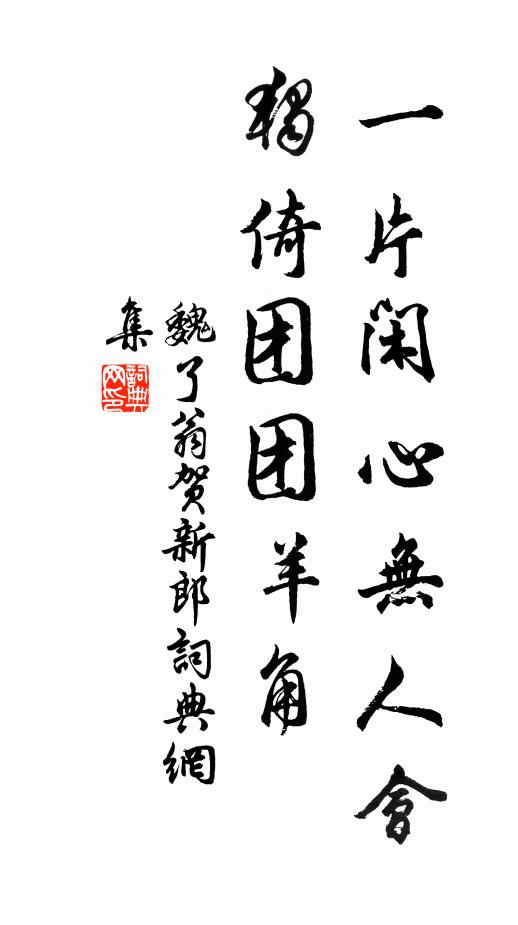 一片闲心無人會
獨倚团团羊角
魏了翁贺新郎詞典網
集
詞典
网印